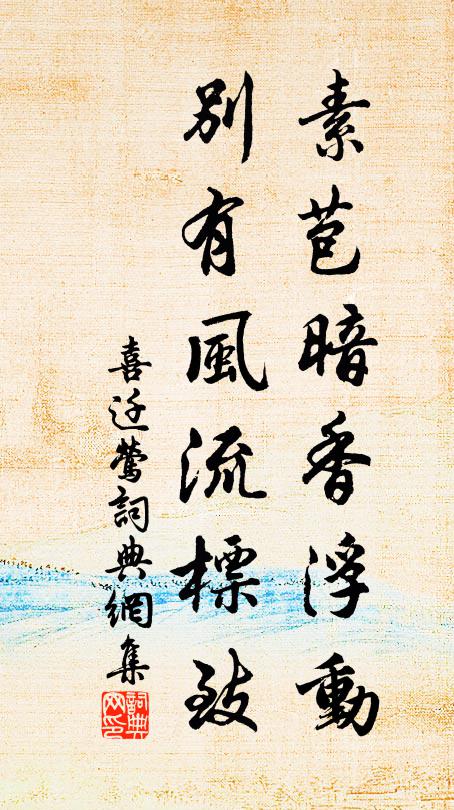 素苞暗香浮動
別有風流標致
喜迁鶯詞典網集
詞典